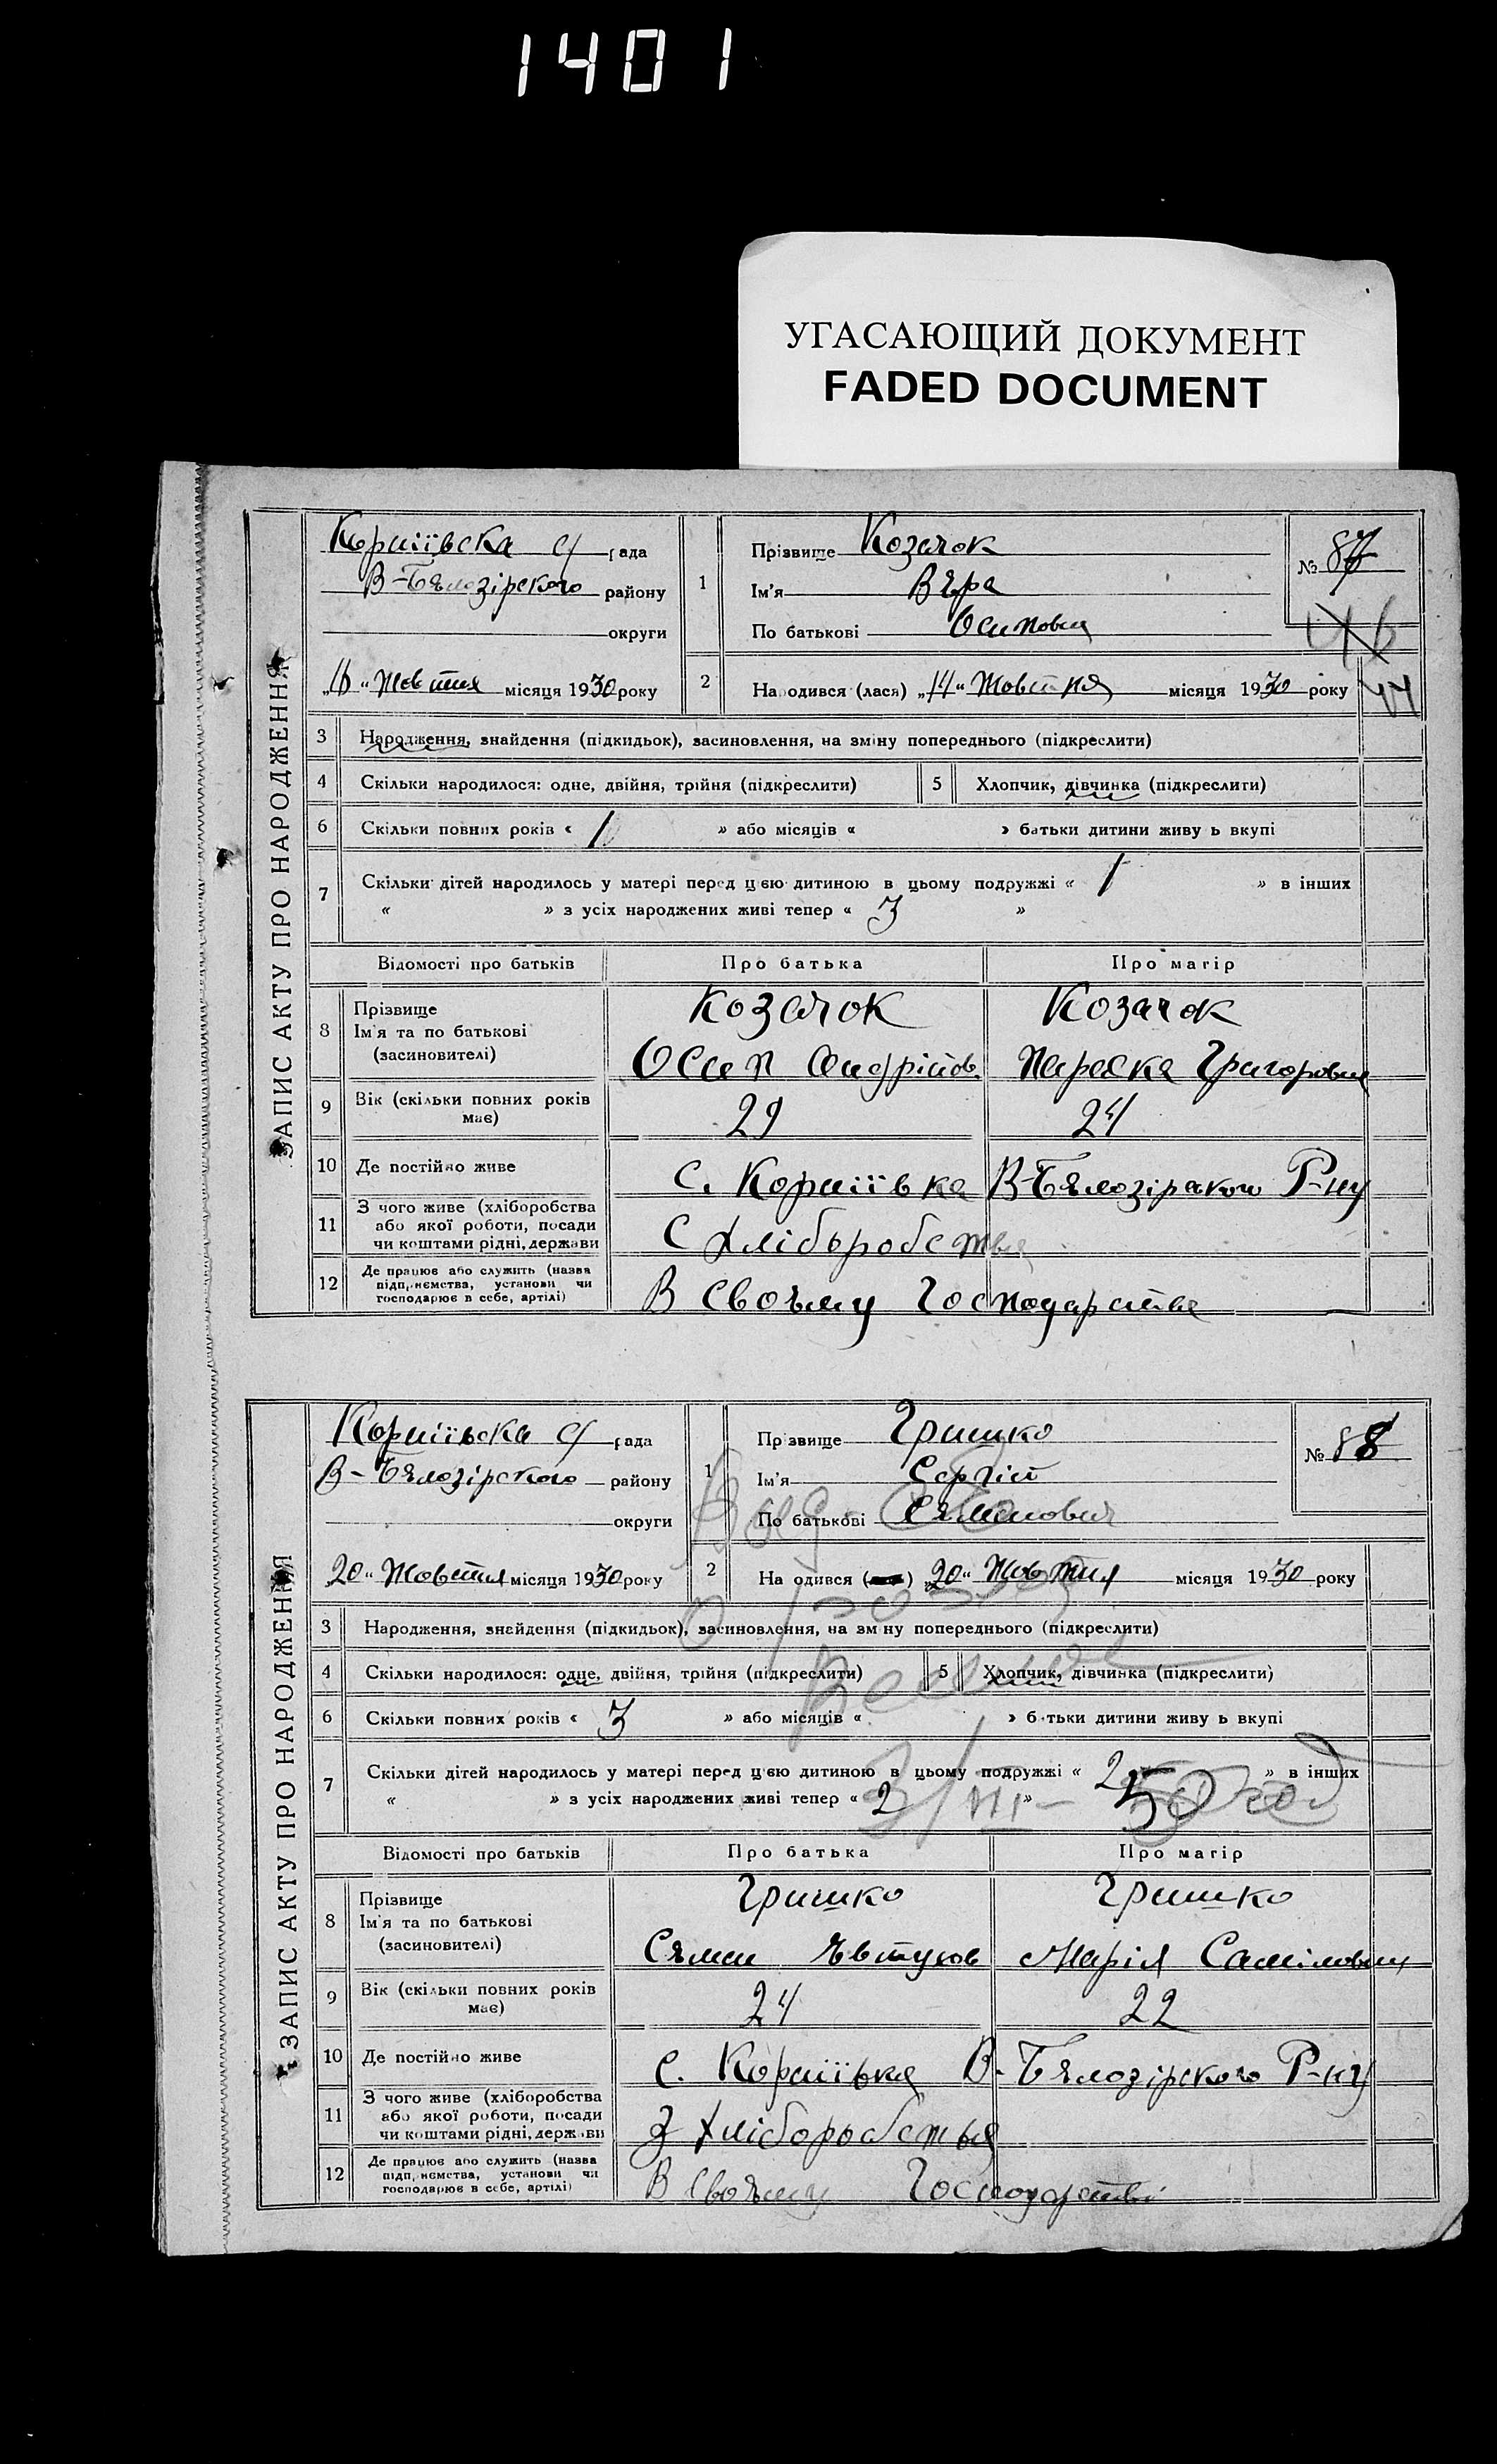 1401
УГАСАЮЩИЙ ДОКУМЕНТ
FADED DOCUMENT
ЗАПИС АКТУ ПРО НАРОДЖЕННЯ
Корніївска с/рада
В-Бялозірского району
округи
„16“ Жовтня місяця 1930 року
1
Прізвище Козачок
Ім'я Вера
По батькові Осиповна
№ 87
46
44
2 Народився (лася) „14“ Жовтня місяця 1930 року
3 Народження, знайдення (підкидьок), засиновлення, на зміну попереднього (підкреслити)
4 Скільки народилося: одне, двійня, трійня (підкреслити) 5 Хлопчик, дівчинка (підкреслити)
6 Скільки повних років « » або місяців « » батьки дитини живуть вкупі
7 Скільки дітей народилось у матері перед цією дитиною в цьому подружжі « 1 » в інших
« » з усіх народжених живі тепер « 3 »
Відомості про батьків Про батька Про матір
8 Прізвище Козачок Козачок
Ім'я та по батькові
(засиновителі) Осип Параска Григоровна
9 Вік (скільки повних років має) 29 24
10 Де постійно живе с. Корніївка В-Бялозірского Р-ну
11 З чого живе (хліборобства
або якої роботи, посади
чи коштами рідні, держави С Хлібьробства
12 Де працює або служить (назва
підприємства, установи чи
господарює в себе, артілі) В Своъму Господарстве
ЗАПИС АКТУ ПРО НАРОДЖЕННЯ
Корніївска с/рада
В-Бялозірского району
округи
20“ Жовтня місяця 1930 року
1
Прізвище Гришко
Ім'я Сергій
По батькові Сяманович
№ 88
2 Народився ( ) „20“ Жовтня місяця 1930 року
3 Народження, знайдення (підкидьок), засиновлення, на зміну попереднього (підкреслити)
4 Скільки народилося: одне, двійня, трійня (підкреслити) 5 Хлопчик, дівчинка (підкреслити)
6 Скільки повних років « 3 » або місяців « » батьки дитини живуть вкупі
7 Скільки дітей народилось у матері перед цією дитиною в цьому подружжі « 2 » в інших
« » з усіх народжених живі тепер « 2 »
3/VII- 50 год
Відомості про батьків Про батька Про матір
8 Прізвище Гришко Гришко
Ім'я та по батькові
(засиновителі) Сяман Ъвтухов Марія Самілов
9 Вік (скільки повних років має) 24 22
10 Де постійно живе с. Корніївка В-Бялозірского Р-ну
11 З чого живе (хліборобства
або якої роботи, посади
чи коштами рідні, держави З Хліборобства
12 Де працює або служить (назва
підприємства, установи чи
господарює в себе, артілі) В Своъму Господарстві